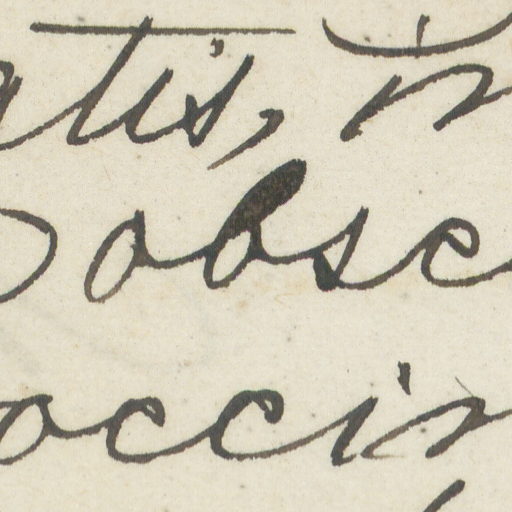 atis, in
obsc
occin